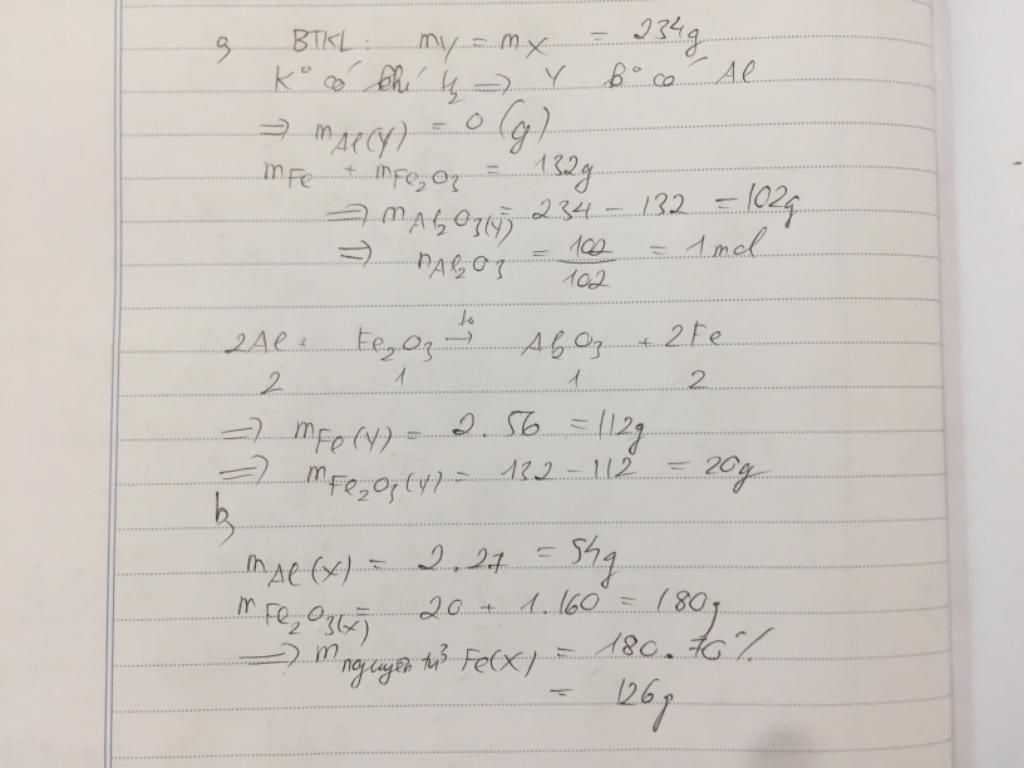 a) BTKL: mY = mX = 234g
K° có khí H₂ ⇒ Y k° có Al
⇒ mAl(Y) = 0 (g)
mFe + mFe₂O₃ = 132g
⇒ mAl₂O₃(Y) = 234 - 132 = 102g
⇒ nAl₂O₃ = 102/102 = 1 mol
2Al + Fe₂O₃ →(t°) Al₂O₃ + 2Fe
2 1 1 2
⇒ mFe(Y) = 2.56 = 112g
⇒ mFe₂O₃(Y) = 132 - 112 = 20g
b)
mAl(X) = 2.27 = 54g
mFe₂O₃(X) = 20 + 1.160 = 180g
⇒ m nguyên tử Fe(X) = 180.70%
= 126g